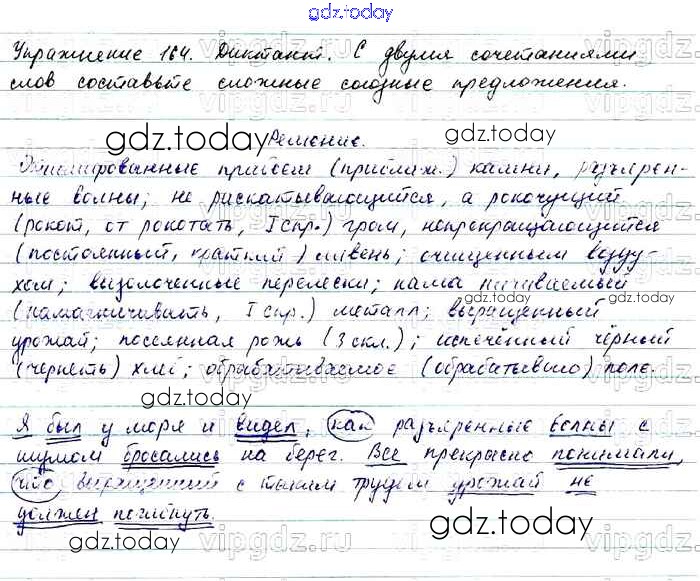 gdz.today
Упражнение 164. Диктант. С двумя сочетаниями
слов составьте сложные союзные предложения.
gdz.today
Решение.
Отшлифованные прибоем (приближ.) камни, разъярен-
ные волны; не раскатывающийся, а рокочущий
(рокот, от рокотать, I спр.) гром, непрекращающийся
(постоянный, краткий) ливень; очищенным возду-
хом; вызолоченные перелески; намагничиваемый
gdz.today
(намагничивать, I спр.) металл; выращенный
урожай; посеянная рожь (3 скл.); испечённый чёрный
(чернеть) хлеб; обрабатываемое (обрабатывать) поле.
gdz.today
gdz.today
Я был у моря и видел, как разъяренные волны с
шумом бросались на берег. Все прекрасно понимали,
что выращенный с таким трудом урожай не
должен погибнуть.
gdz.today
gdz.today
vipgdz.ru